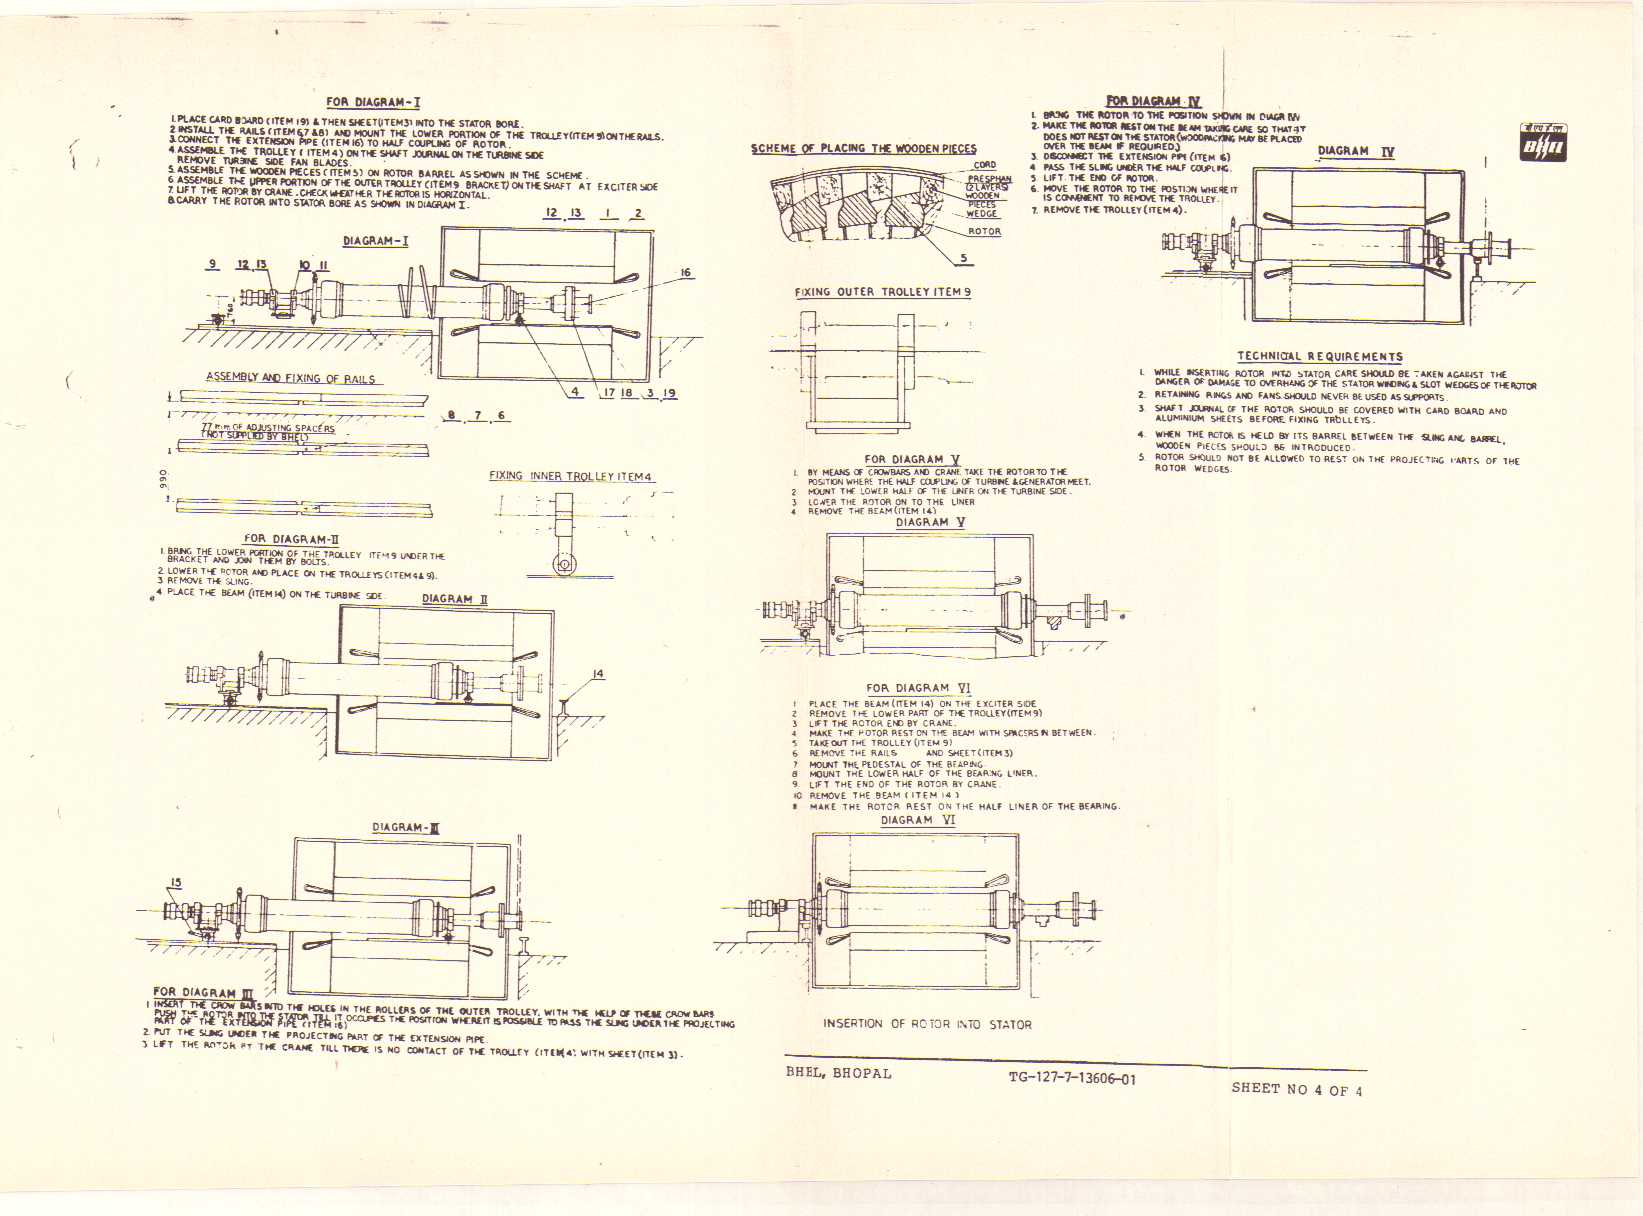 FOR DIAGRAM-I
1.PLACE CARD BOARD (ITEM 19) & THEN SHEET(ITEM3) INTO THE STATOR BORE.
2.INSTALL THE RAILS (ITEM 6,7 & 8) AND MOUNT THE LOWER PORTION OF THE TROLLEY(ITEM 9) ON THE RAILS.
3.CONNECT THE EXTENSION PIPE (ITEM 16) TO HALF COUPLING OF ROTOR.
4.ASSEMBLE THE TROLLEY ( ITEM 4) ON THE SHAFT JOURNAL ON THE TURBINE SIDE
REMOVE TURBINE SIDE FAN BLADES.
5.ASSEMBLE THE WOODEN PIECES ( ITEM 5) ON ROTOR BARREL AS SHOWN IN THE SCHEME.
6.ASSEMBLE THE UPPER PORTION OF THE OUTER TROLLEY (ITEM 9 BRACKET) ON THE SHAFT AT EXCITER SIDE
7.LIFT THE ROTOR BY CRANE .CHECK WHEATHER THE ROTOR IS HORIZONTAL.
8.CARRY THE ROTOR INTO STATOR BORE AS SHOWN IN DIAGRAM I.
DIAGRAM-I
12, 13 1 2
9 12,13 10 11
16
760
4 17 18 3,19
ASSEMBLY AND FIXING OF RAILS
8, 7, 6
77 m.m. OF ADJUSTING SPACERS
(NOT SUPPLIED BY BHEL)
990.
FIXING INNER TROLLEY ITEM 4
FOR DIAGRAM-II
1.BRING THE LOWER PORTION OF THE TROLLEY ITEM 9 UNDER THE
BRACKET AND JOIN THEM BY BOLTS.
2 LOWER THE ROTOR AND PLACE ON THE TROLLEYS (ITEM 4 & 9).
3 REMOVE THE SLING.
4. PLACE THE BEAM (ITEM 14) ON THE TURBINE SIDE.
DIAGRAM II
14
DIAGRAM-III
15
FOR DIAGRAM III
1 INSERT THE CROW BARS INTO THE HOLES IN THE ROLLERS OF THE OUTER TROLLEY, WITH THE HELP OF THESE CROW BARS
PUSH THE ROTOR INTO THE STATOR TILL IT OCCUPIES THE POSITION WHERE IT IS POSSIBLE TO PASS THE SLING UNDER THE PROJECTING
PART OF THE EXTENSION PIPE (ITEM 16)
2. PUT THE SLING UNDER THE PROJECTING PART OF THE EXTENSION PIPE.
3 LIFT THE ROTOR BY THE CRANE TILL THERE IS NO CONTACT OF THE TROLLEY (ITEM 4) WITH SHEET (ITEM 3).
SCHEME OF PLACING THE WOODEN PIECES
CORD
PRESPHAN
(2 LAYERS)
WOODEN
PIECES
WEDGE
ROTOR
5
FIXING OUTER TROLLEY ITEM 9
FOR DIAGRAM V
1. BY MEANS OF CROWBARS AND CRANE TAKE THE ROTOR TO THE
POSITION WHERE THE HALF COUPLING OF TURBINE & GENERATOR MEET.
2 MOUNT THE LOWER HALF OF THE LINER ON THE TURBINE SIDE.
3 LOWER THE ROTOR ON TO THE LINER
4 REMOVE THE BEAM (ITEM 14)
DIAGRAM V
FOR DIAGRAM VI
1 PLACE THE BEAM (ITEM 14) ON THE EXCITER SIDE
2 REMOVE THE LOWER PART OF THE TROLLEY (ITEM 9)
3 LIFT THE ROTOR END BY CRANE.
4 MAKE THE ROTOR REST ON THE BEAM WITH SPACERS IN BETWEEN.
5 TAKE OUT THE TROLLEY (ITEM 9)
6 REMOVE THE RAILS AND SHEET (ITEM 3)
7 MOUNT THE PEDESTAL OF THE BEARING.
8 MOUNT THE LOWER HALF OF THE BEARING LINER.
9. LIFT THE END OF THE ROTOR BY CRANE.
10 REMOVE THE BEAM ( ITEM 14 )
MAKE THE ROTOR REST ON THE HALF LINER OF THE BEARING.
DIAGRAM VI
INSERTION OF ROTOR INTO STATOR
FOR DIAGRAM IV
1. BRING THE ROTOR TO THE POSITION SHOWN IN DIAGR IV
2. MAKE THE ROTOR REST ON THE BEAM TAKING CARE SO THAT IT
DOES NOT REST ON THE STATOR (WOODPACKING MAY BE PLACED
OVER THE BEAM IF REQUIRED.)
3. DISCONNECT THE EXTENSION PIPE (ITEM 16)
4 PASS THE SLING UNDER THE HALF COUPLING.
5 LIFT THE END OF ROTOR.
6. MOVE THE ROTOR TO THE POSTION WHERE IT
IS CONVENIENT TO REMOVE THE TROLLEY.
7. REMOVE THE TROLLEY (ITEM 4).
DIAGRAM IV
TECHNICAL REQUIREMENTS
1. WHILE INSERTING ROTOR INTO STATOR CARE SHOULD BE TAKEN AGAINST THE
DANGER OF DAMAGE TO OVERHANG OF THE STATOR WINDING & SLOT WEDGES OF THE ROTOR
2. RETAINING RINGS AND FANS SHOULD NEVER BE USED AS SUPPORTS.
3. SHAFT JOURNAL OF THE ROTOR SHOULD BE COVERED WITH CARD BOARD AND
ALUMINIUM SHEETS BEFORE FIXING TROLLEYS.
4. WHEN THE ROTOR IS HELD BY ITS BARREL BETWEEN THE SLING AND BARREL,
WOODEN PIECES SHOULD BE INTRODUCED.
5 ROTOR SHOULD NOT BE ALLOWED TO REST ON THE PROJECTING PARTS OF THE
ROTOR WEDGES.
बी एच ई एल
BHEL
BHEL, BHOPAL
TG-127-7-13606-01
SHEET NO 4 OF 4